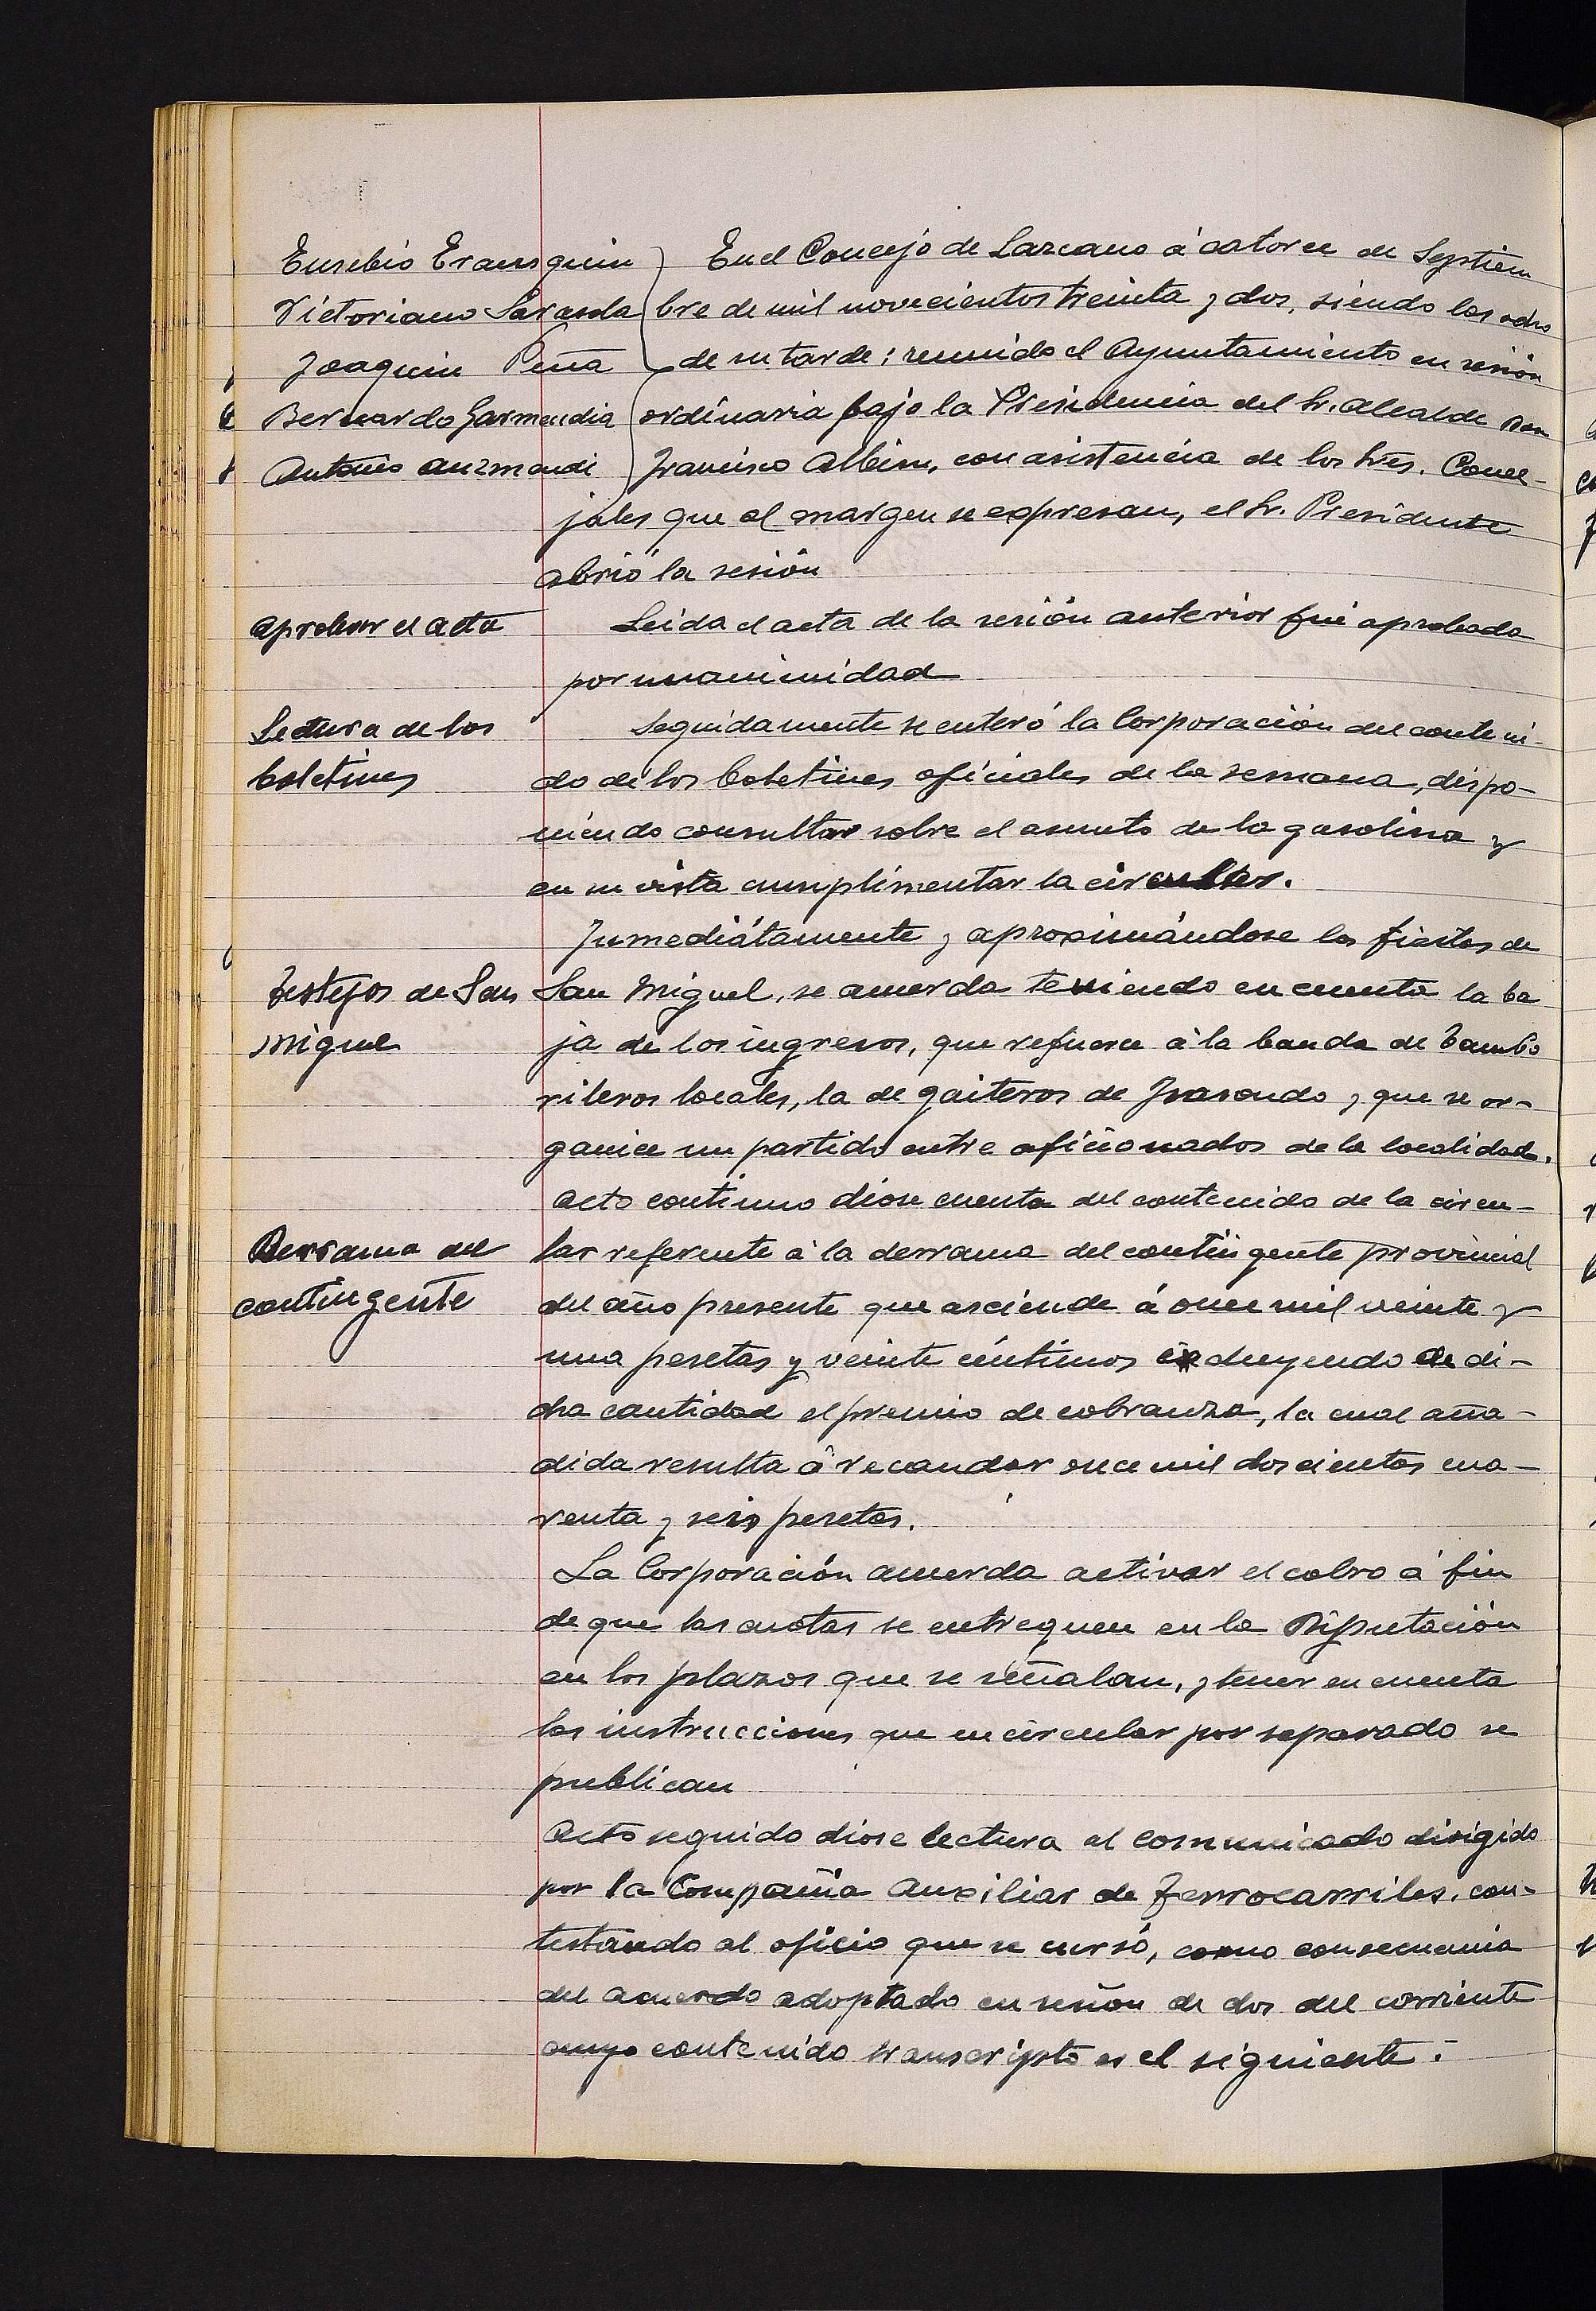 Eusebio Erausquin
Victoriano Sarasola
Joaquin Peña
Bernardo Garmendia
Antonio Auzmendi
En el Concejo de Lazcano á catorce de Septiem
bre de mil novecientos treinta y dos, siendo las ocho
de su tarde; reunido el Ayuntamiento en sesión
ordinaria bajo la Presidencia del Sr. Alcalde Don
Francisco Albisu, con asistencia de los Sres. Conce-
jales que al margen se expresan, el Sr. Presidente
abrió la sesión
Aprobar el acta
Leida el acta de la sesión anterior fué aprobada
por unanimidad
Lectura de los
boletines
Seguidamente se enteró la Corporación del conteni-
do de los boletines oficiales de la semana, dispo-
niendo consultar sobre el asunto de la gasolina y
en su vista cumplimentar la circular.
Inmediátamente y aproximándose las fiestas de
Festejos de San
Miguel
San Miguel, se acuerda teniendo en cuenta la ba
ja de los ingresos, que refuerce á la banda de tambo
rileros locales, la de gaiteros de y que se or-
ganice un partido entre aficionados de la localidad.
Acto continuo dióse cuenta del contenido de la circu-
Derrama del
contingente
lar referente á la derrama del contingente provincial
del año presente que asciende á once mil veinte y
una pesetas y veinte céntimos excluyendo de di-
cha cantidad el premio de cobranza, la cual aña-
dida resulta á recaudar once mil doscientas cua-
renta y seis pesetas.
La Corporación acuerda activar el cobro á fin
de que las cuotas se entreguen en la Diputación
en los plazos que se señalan, y tener en cuenta
las instrucciones que en circular por separado se
publican
Acto seguido dióse lectura al comunicado dirigido
por la Compañia Auxiliar de Ferrocarriles, con-
testando al oficio que se cursó, como consecuencia
del acuerdo adoptado en sesión de dos del corriente
cuyo contenido transcripto es el siguiente: